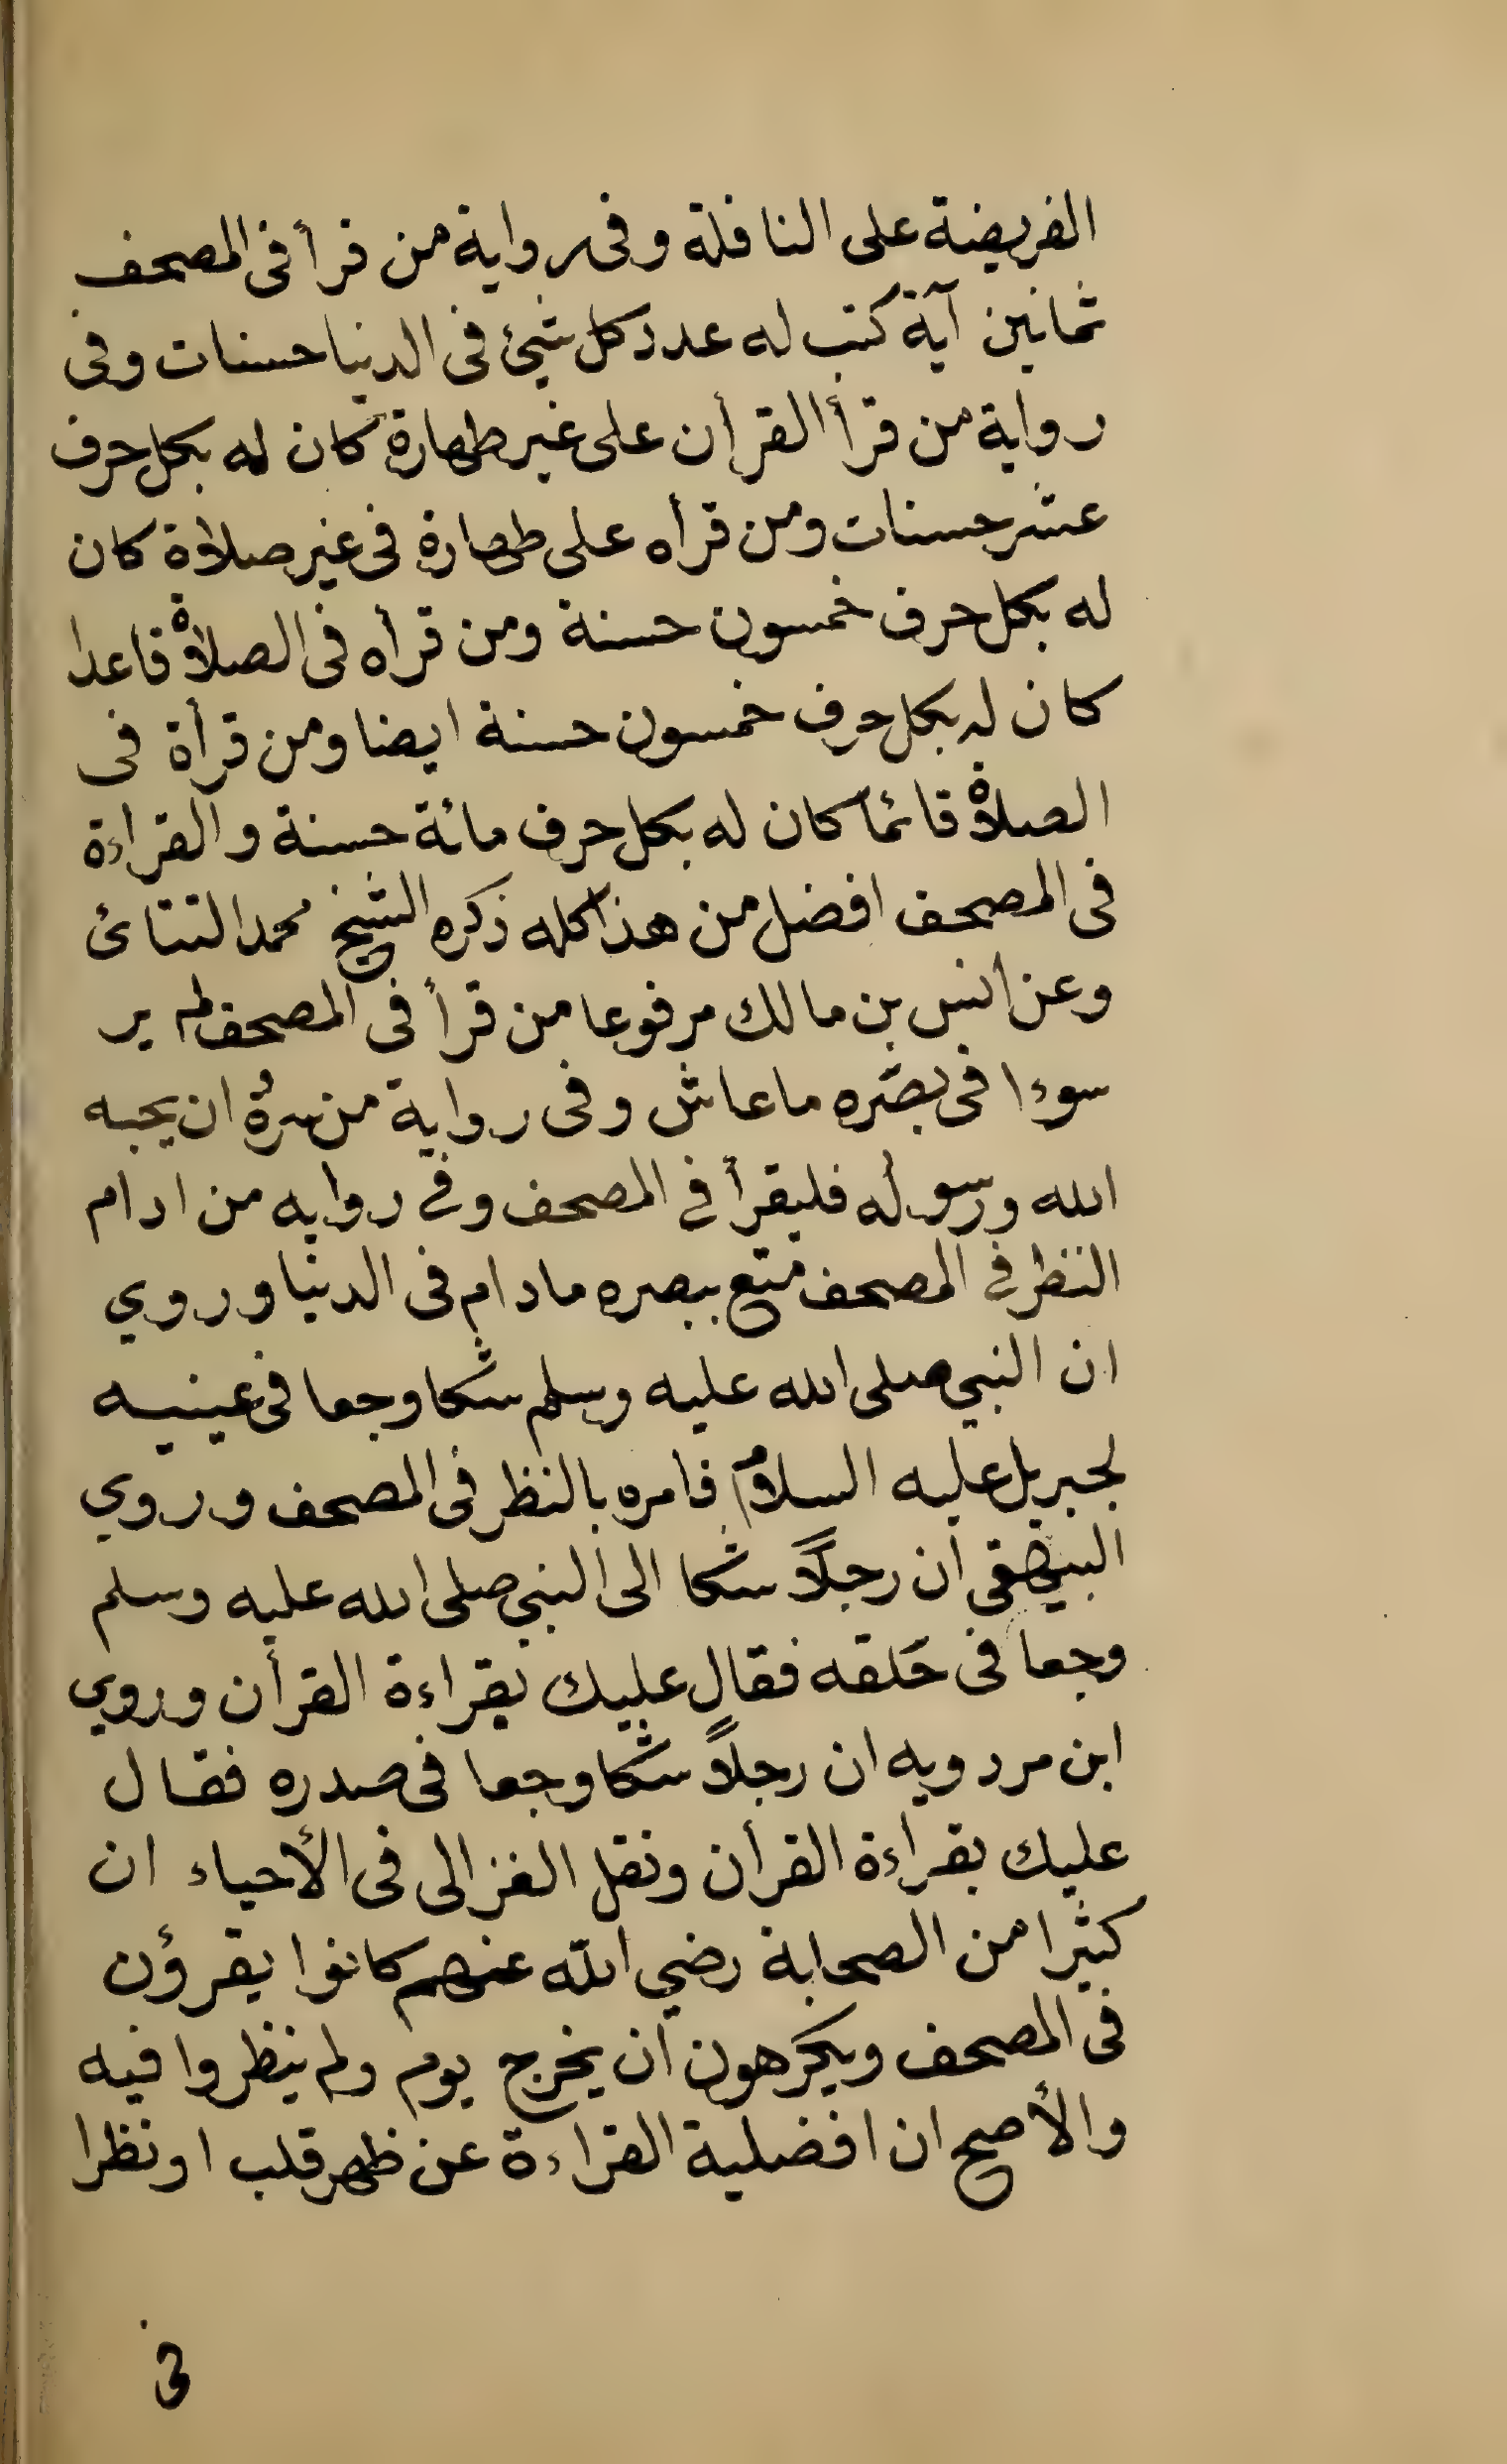 الفريضة على النافلة وفى رواية من قرأ فى المصحف
ثمانين آية كتب له عدد كل شيئ فى الدنيا حسنات وفى
رواية من قرأ القرأن على غير طهارة كان له بكل حرف
عشر حسنات ومن قرأه على طهارة فى غير صلاة كان
له بكل حرف خمسون حسنة ومن قرأه فى الصلاة قاعدا
كان له بكل حرف خمسون حسنة ايضا ومن قرأة فى
الصلاة قائما كان له بكل حرف مائة حسنة والقراءة
فى المصحف افضل من هذا كله ذكره الشيخ محمد التتائ
وعن انس بن مالك مرفوعا من قرأ فى المصحف لم ير
سوءا فى بصره ما عاش وفى رواية من سره ان يحبه
الله ورسوله فليقرأ في المصحف وفي روايه من ادام
النظر في المصحف متع ببصره مادام فى الدنيا وروي
ان النبي صلى الله عليه وسلم شكا وجعا فى عينيه
لجبريل عليه السلام فامره بالنظر فى المصحف وروي
البيهقى ان رجلاً شكا الى النبي صلى الله عليه وسلم
وجعا فى حَلقه فقال عليك بقراءة القرأن وروي
ابن مردويه ان رجلاً شكا وجعا فى صدره فقال
عليك بقراءة القرأن ونقل الغزالى فى الأحياء ان
كثيرا من الصحابة رضي الله عنهم كانوا يقرؤن
فى المصحف ويكرهون ان يخرج يوم ولم ينظروا فيه
والأصح ان افضلية القراءة عن ظهر قلب او نظرا
فى